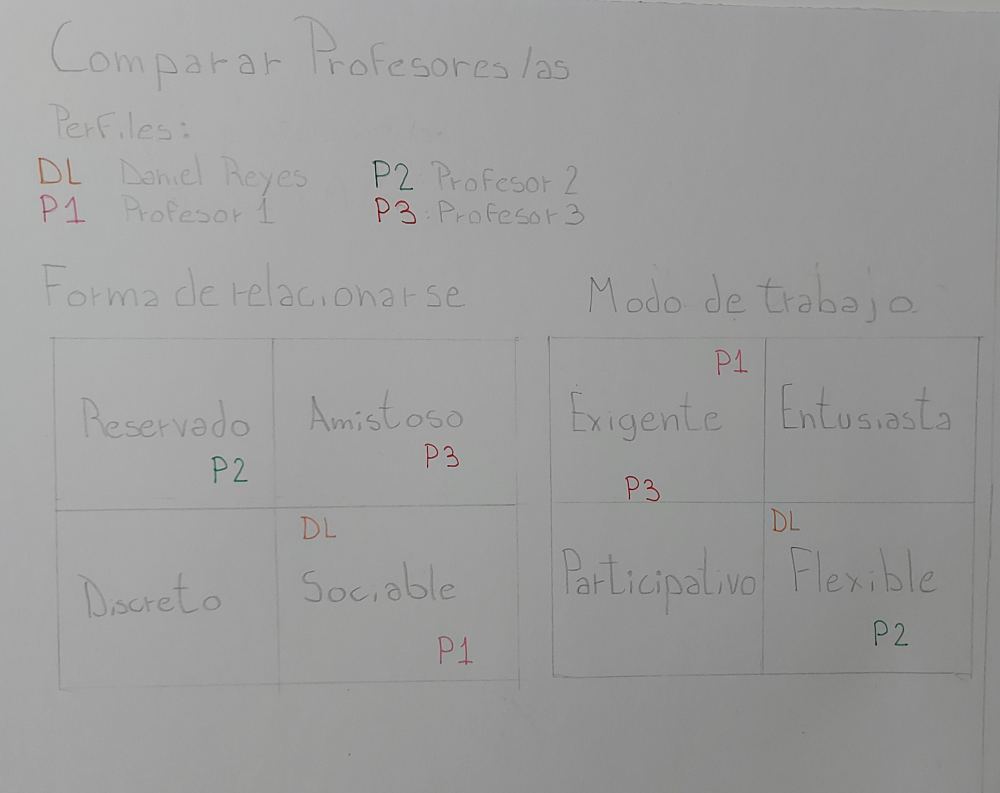 Comparar Profesores/as
Perfiles:
DL Daniel Reyes P2 Profesor 2
P1 Profesor 1 P3: Profesor 3
Forma de relacionarse
Reservado
P2
Amistoso
P3
Discreto
DL
Sociable
P1
Modo de trabajo
P1
Exigente
P3
Entusiasta
Participativo
DL
Flexible
P2